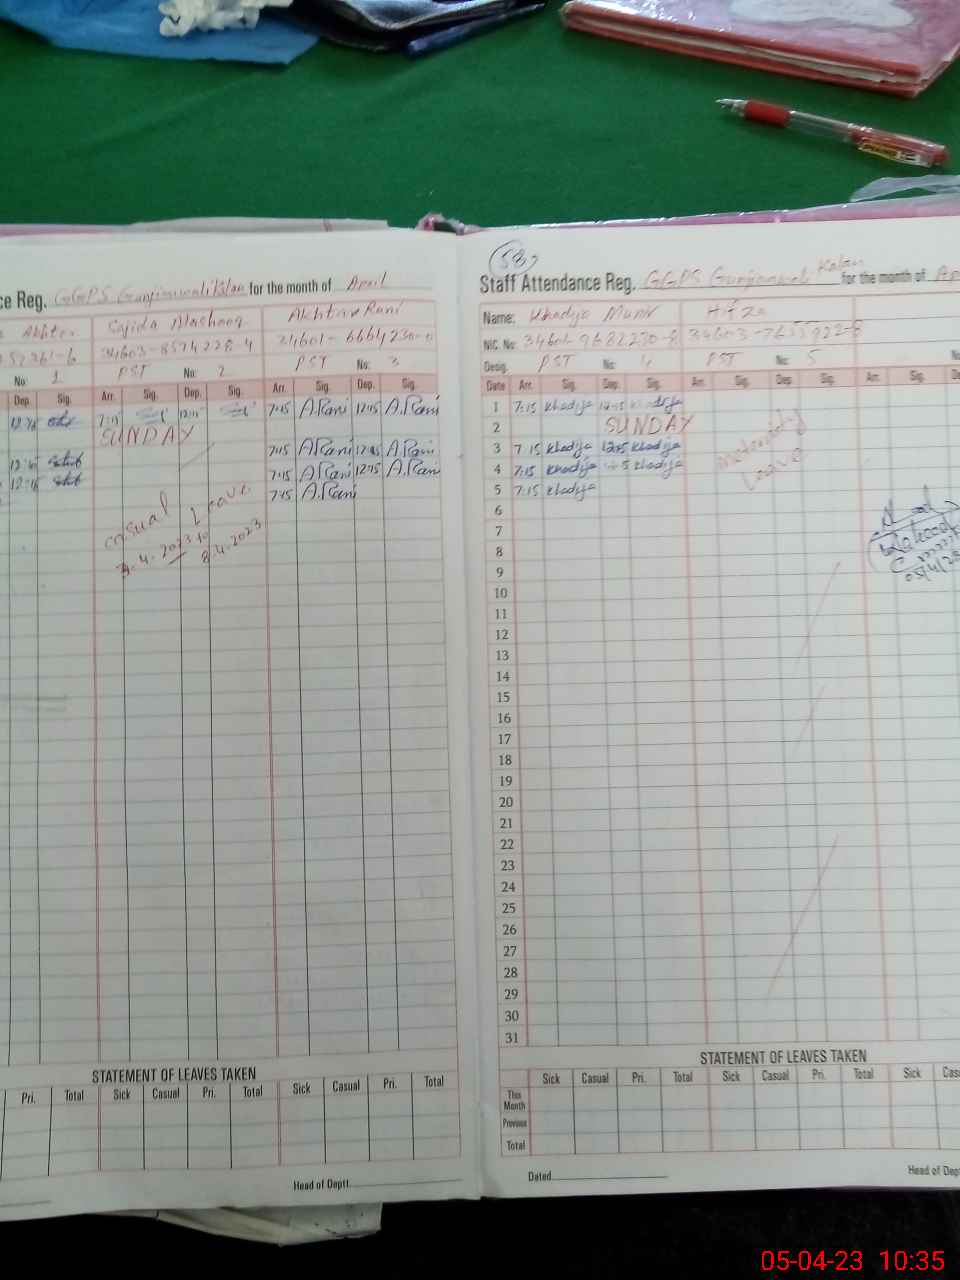 ce Reg. GGPS Gunjianwali Kalan for the month of April
Akhter Sajida Mashooq Akhtar Rani
34603-8574228-4 34601-6664230-
No: 1 PST No: 2 PST No: 3
Dep. Sig. Arr. Sig. Dep. Sig. Arr. Sig. Dep. Sig.
7:15 12:15 7:15 A.Rani 12:15 A.Rani
SUNDAY
7:15 A.Rani 12:15 A.Rani
7:15 A.Rani 12:15 A.Rani
7:15 A.Rani
Casual Leave
3.4.2023 to
8.4.2023
STATEMENT OF LEAVES TAKEN
Pri. Total Sick Casual Pri. Total Sick Casual Pri. Total
Head of Deptt.
58
Staff Attendance Reg. GGPS Gunjianwali Kalan for the month of
Name: Khadija Munir Hifza
NIC. No: 34601-9682230-8 34603-7655922-8
Desig. PST No: 4 PST No: 5
Date Arr. Sig. Dep. Sig. Arr. Sig. Dep. Sig. Arr. Sig.
1 7:15 Khadija 12:15 Khadija
2 SUNDAY
3 7:15 Khadija 12:15 Khadija
4 7:15 Khadija Khadija
5 7:15 Khadija
Maternity
Leave
6
7
8
9
10
11
12
13
14
15
16
17
18
19
20
21
22
23
24
25
26
27
28
29
30
31
05/4/23
STATEMENT OF LEAVES TAKEN
Sick Casual Pri. Total Sick Casual Pri. Total Sick
This Month
Previous
Total
Dated Head of
05-04-23 10:35